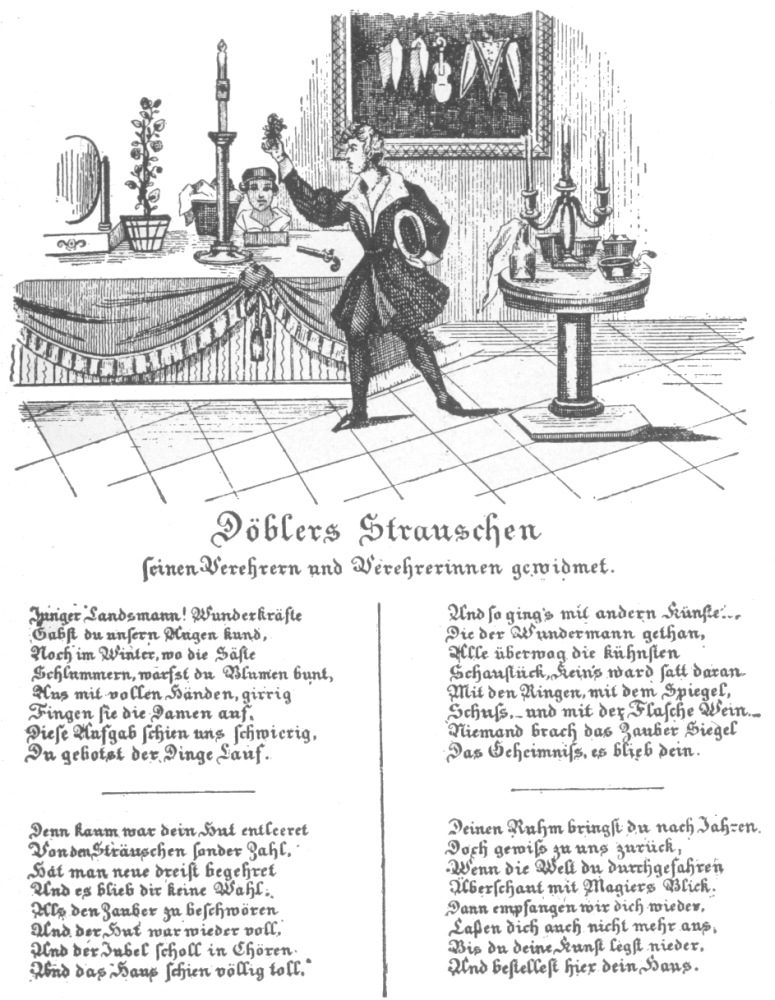 Döblers Strauschen
seinen Verehrern und Verehrerinnen gewidmet.
Junger Landsmann! Wunderkräfte
Gabst du unsern Augen kund,
Noch im Winter, wo die Säfte
Schlummern, warfst du Blumen bunt,
Aus mit vollen Händen, girrig
Fingen sie die Damen auf.
Diese Aufgab schien uns schwierig,
Du gebotst der Dinge Lauf.
Denn kaum war dein Hut entleeret
Von den Sträuschen sonder Zahl,
Hat man neue dreist begehret
Und es blieb dir keine Wahl.
Als den Zauber zu beschwören
Und der Hut war wieder voll,
Und der Jubel scholl in Chören
Und das Haus schien völlig toll.
Und so ging's mit andern Künste...
Die der Wundermann gethan,
Alle überwog die kühnsten
Schaustück, Kein's ward satt daran
Mit den Ringen, mit dem Spiegel,
Schuss, – und mit der Flasche Wein. –
Niemand brach das Zauber Siegel
Das Geheimniss, es blieb dein.
Deinen Ruhm bringst du nach Jahren
Doch gewiss zu uns zurück,
Wenn die Welt du durchgefahren
Überschant mit Magiers Blick.
Dann empfangen wir dich wieder,
Laßen dich auch nicht mehr aus,
Bis du deine Kunst legst nieder,
Und bestellest hier dein Haus.